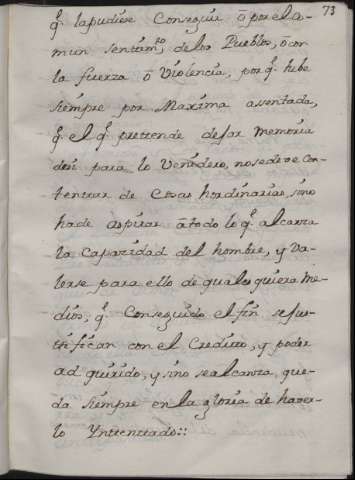 73
q.e la pudiese Conseguir ô por el co-
mun sentim.to de los Pueblos, ô con
la fuerza ô Violencia, por q.e hube
siempre por Maxima assentada,
q.e el q.e pretende dejar memoria
desi para lo Venidero, no sedeve con-
tentar de Cosas hordinarias, sino
hade aspirar ătodo lo q.e alcanza
la Capazidad del hombre, y Va-
lerse para ello de qualesquiera me-
dios, q.e Conseguido el fin sejus-
tifican con el Credito, y poder
adquirido, y sino sealcanza, que-
da siempre en la gloria de haver-
lo Yntentado::